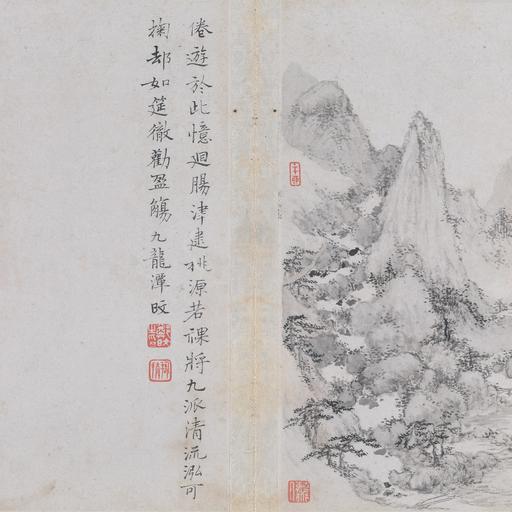 倦遊於此憶迴腸津逮桃源若裸將九派清流泓可
掬却如筵徹勸盈觴九龍潭旼